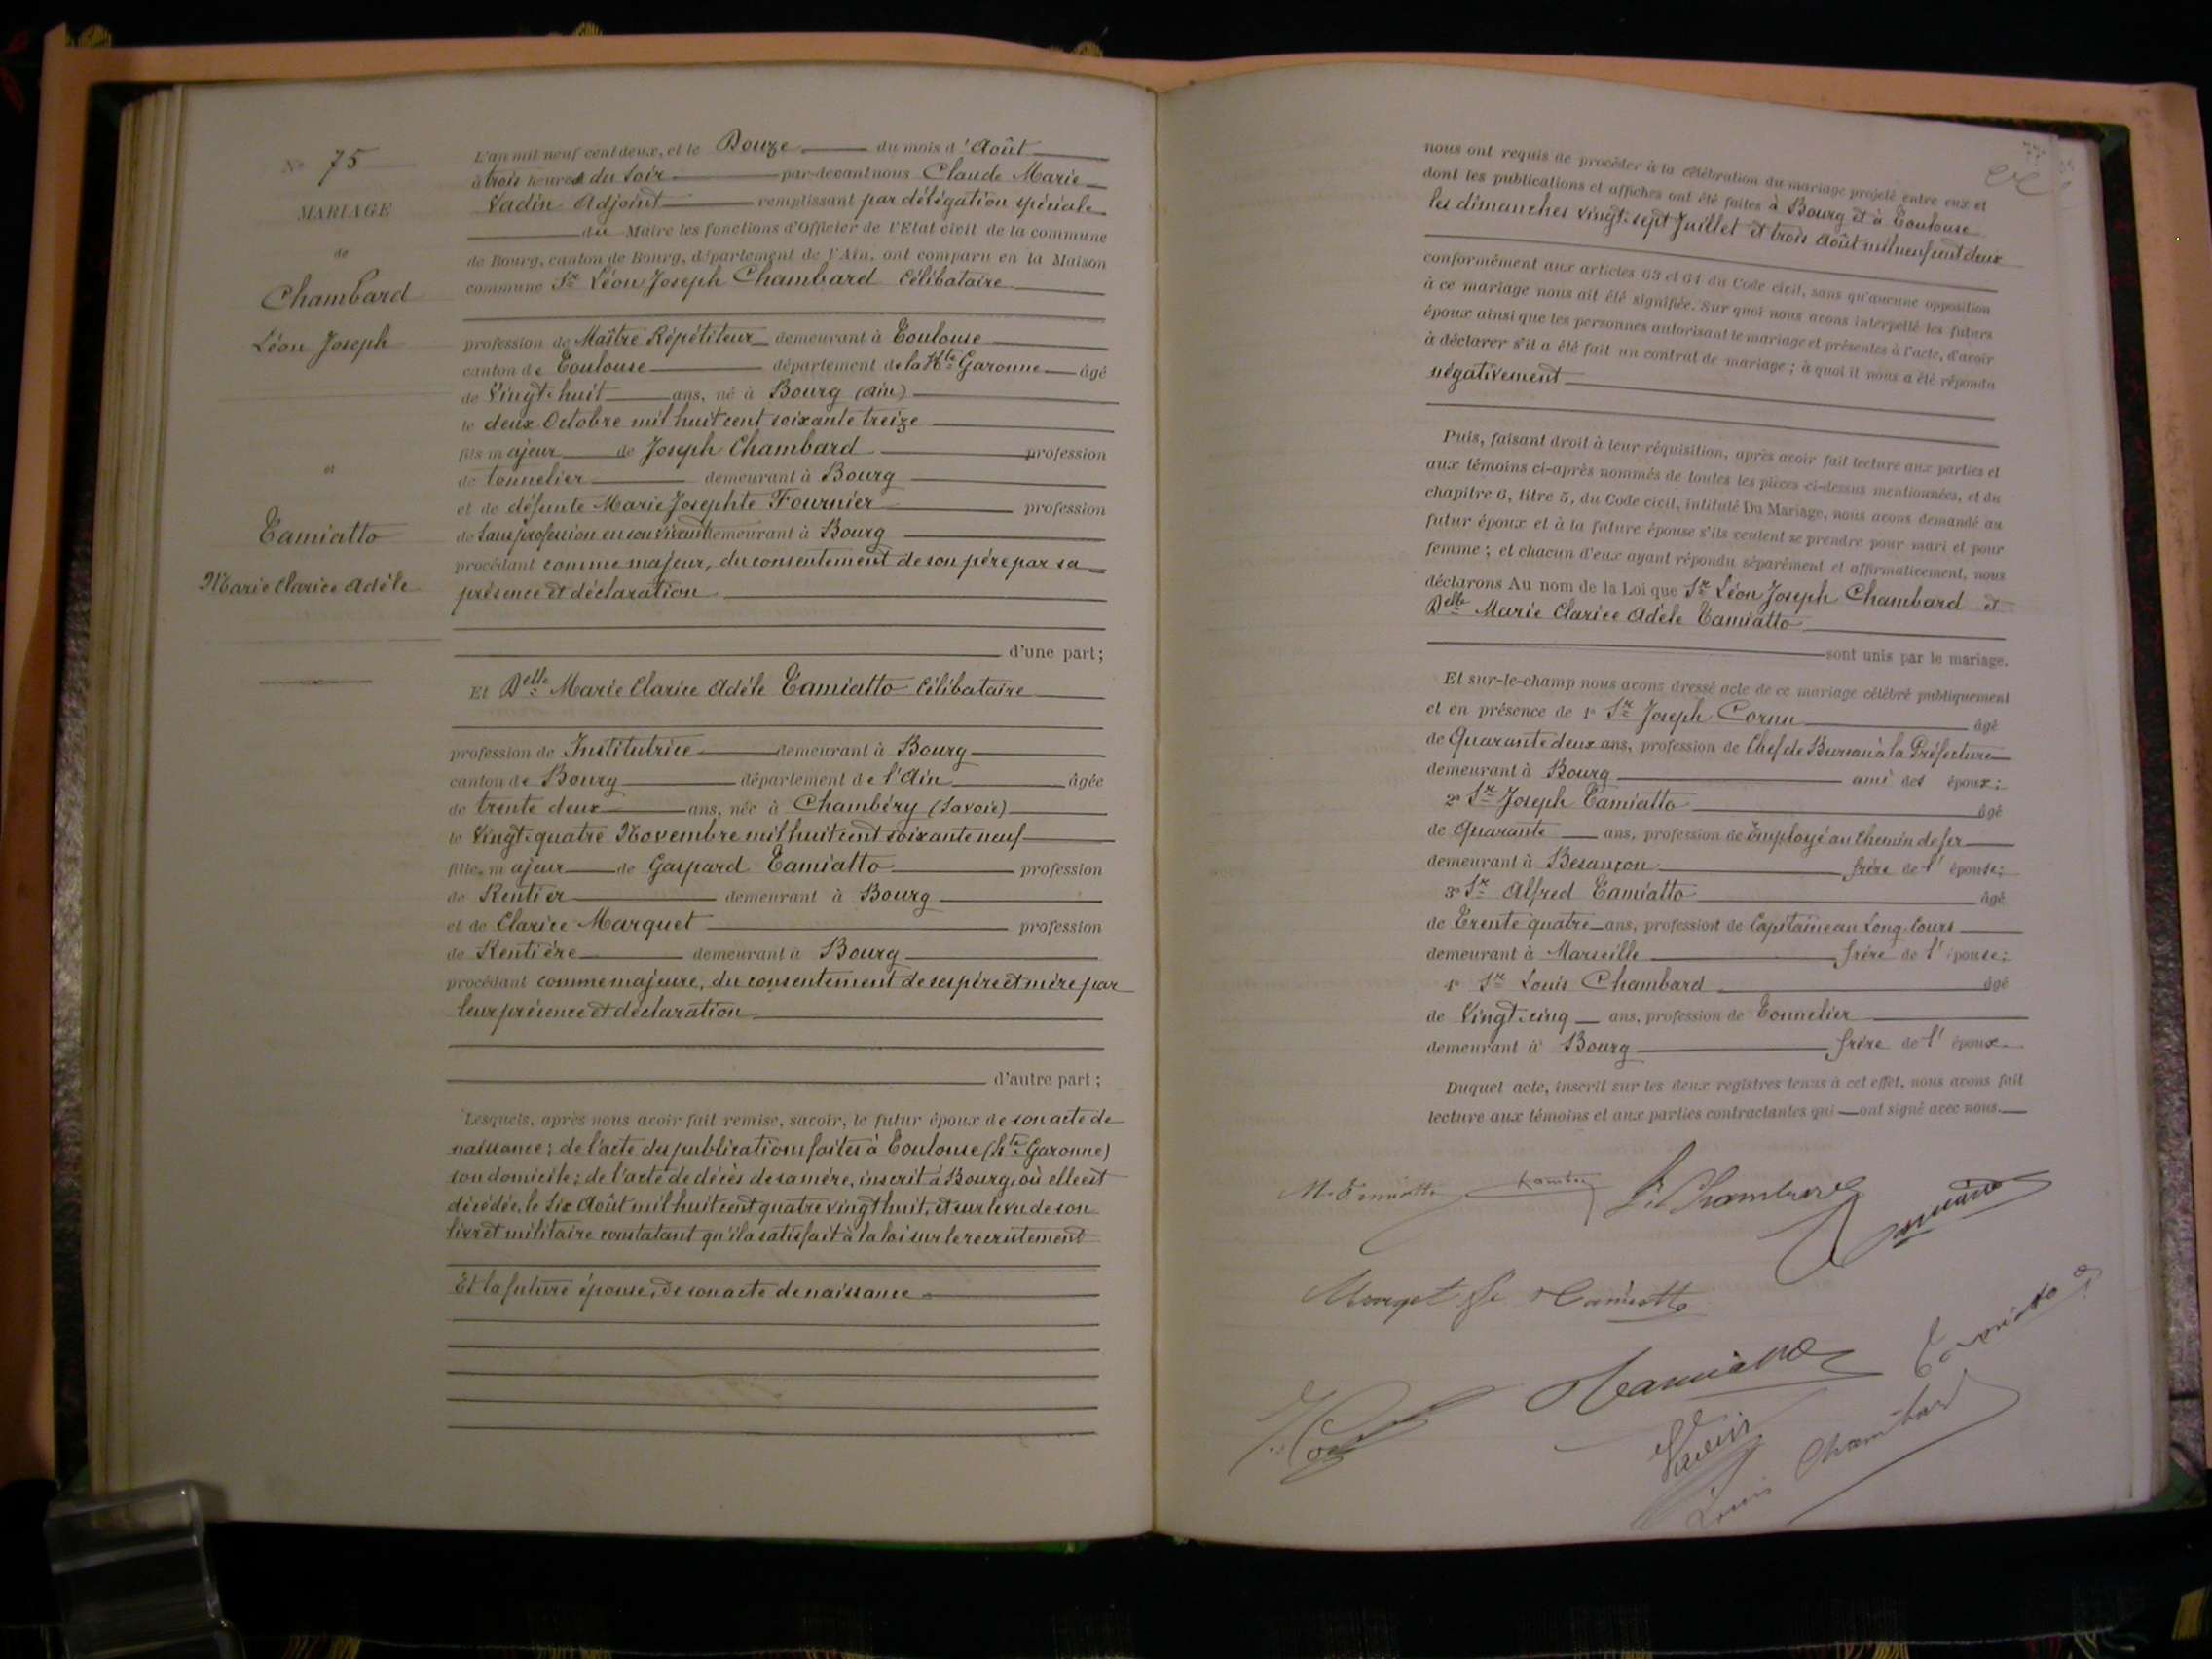 N° 75
MARIAGE
de
Chambard
Léon Joseph
et
Tamiatto
Marie Clarice Adèle
L'an mil neuf cent deux, et le Douze du mois d'Août
à trois heures du soir par-devant nous Claude Marie
Vadin Adjoint remplissant par délégation spéciale
du Maire les fonctions d'Officier de l'Etat civil de la commune
de Bourg, canton de Bourg, département de l'Ain, ont comparu en la Maison
commune Sr Léon Joseph Chambard Célibataire
profession de Maître Répétiteur demeurant à Toulouse
canton de Toulouse département de la Hte Garonne âgé
de Vingt-huit ans, né à Bourg (Ain)
le deux Octobre mil huit cent soixante treize
fils majeur de Joseph Chambard profession
de tonnelier demeurant à Bourg
et de défunte Marie Josephte Fournier profession
de Sans profession en son vivant demeurant à Bourg
procédant comme majeur, du consentement de son père par sa
présence et déclaration
d'une part;
Et Delle Marie Clarice Adèle Tamiatto Célibataire
profession de Institutrice demeurant à Bourg
canton de Bourg département de l'Ain âgée
de trente deux ans, née à Chambéry (Savoie)
le Vingt-quatre Novembre mil huit cent soixante neuf
fille majeur de Gaspard Tamiatto profession
de Rentier demeurant à Bourg
et de Clarice Marquet profession
de Rentière demeurant à Bourg
procédant comme majeure, du consentement de ses père et mère par
leur présence et déclaration
d'autre part;
Lesquels, après nous avoir fait remise, savoir, le futur époux de son acte de
naissance; de l'acte des publications faites à Toulouse (Hte Garonne)
son domicile; de l'acte de décès de sa mère, inscrit à Bourg, où elle est
décédée, le Six Août mil huit cent quatre vingt huit, et sur le vu de son
livret militaire constatant qu'il a satisfait à la loi sur le recrutement
Et la future épouse, de son acte de naissance
nous ont requis de procéder à la célébration du mariage projeté entre eux et
dont les publications et affiches ont été faites à Bourg et à Toulouse
les dimanches vingt-sept Juillet et trois Août mil neuf cent deux
conformément aux articles 63 et 64 du Code civil, sans qu'aucune opposition
à ce mariage nous ait été signifiée. Sur quoi nous avons interpellé les futurs
époux ainsi que les personnes autorisant le mariage et présentes à l'acte, d'avoir
à déclarer s'il a été fait un contrat de mariage; à quoi il nous a été répondu
négativement
Puis, faisant droit à leur réquisition, après avoir fait lecture aux parties et
aux témoins ci-après nommés de toutes les pièces ci-dessus mentionnées, et du
chapitre 6, titre 5, du Code civil, intitulé Du Mariage, nous avons demandé au
futur époux et à la future épouse s'ils veulent se prendre pour mari et pour
femme; et chacun d'eux ayant répondu séparément et affirmativement, nous
déclarons Au nom de la Loi que Sr Léon Joseph Chambard et
Delle Marie Clarice Adèle Tamiatto
sont unis par le mariage.
Et sur-le-champ nous avons dressé acte de ce mariage célébré publiquement
et en présence de 1° Sr Joseph Cornu âgé
de Quarante deux ans, profession de Chef de Bureau à la Préfecture
demeurant à Bourg ami des époux;
2° Sr Joseph Tamiatto âgé
de Quarante ans, profession de Employé au Chemin de fer
demeurant à Besançon frère de l'épouse;
3° Sr Alfred Tamiatto âgé
de Trente quatre ans, profession de Capitaine au Long-Cours
demeurant à Marseille frère de l'épouse;
4° Sr Louis Chambard âgé
de Vingt-cinq ans, profession de Tonnelier
demeurant à Bourg frère de l'époux.
Duquel acte, inscrit sur les deux registres tenus à cet effet, nous avons fait
lecture aux témoins et aux parties contractantes qui ont signé avec nous.
M. Tamiatto
L. Chambard
Tamiatto
Marquet fe Tamiatto
Tamiatto
Tamiatto
Vadin
Louis Chambard